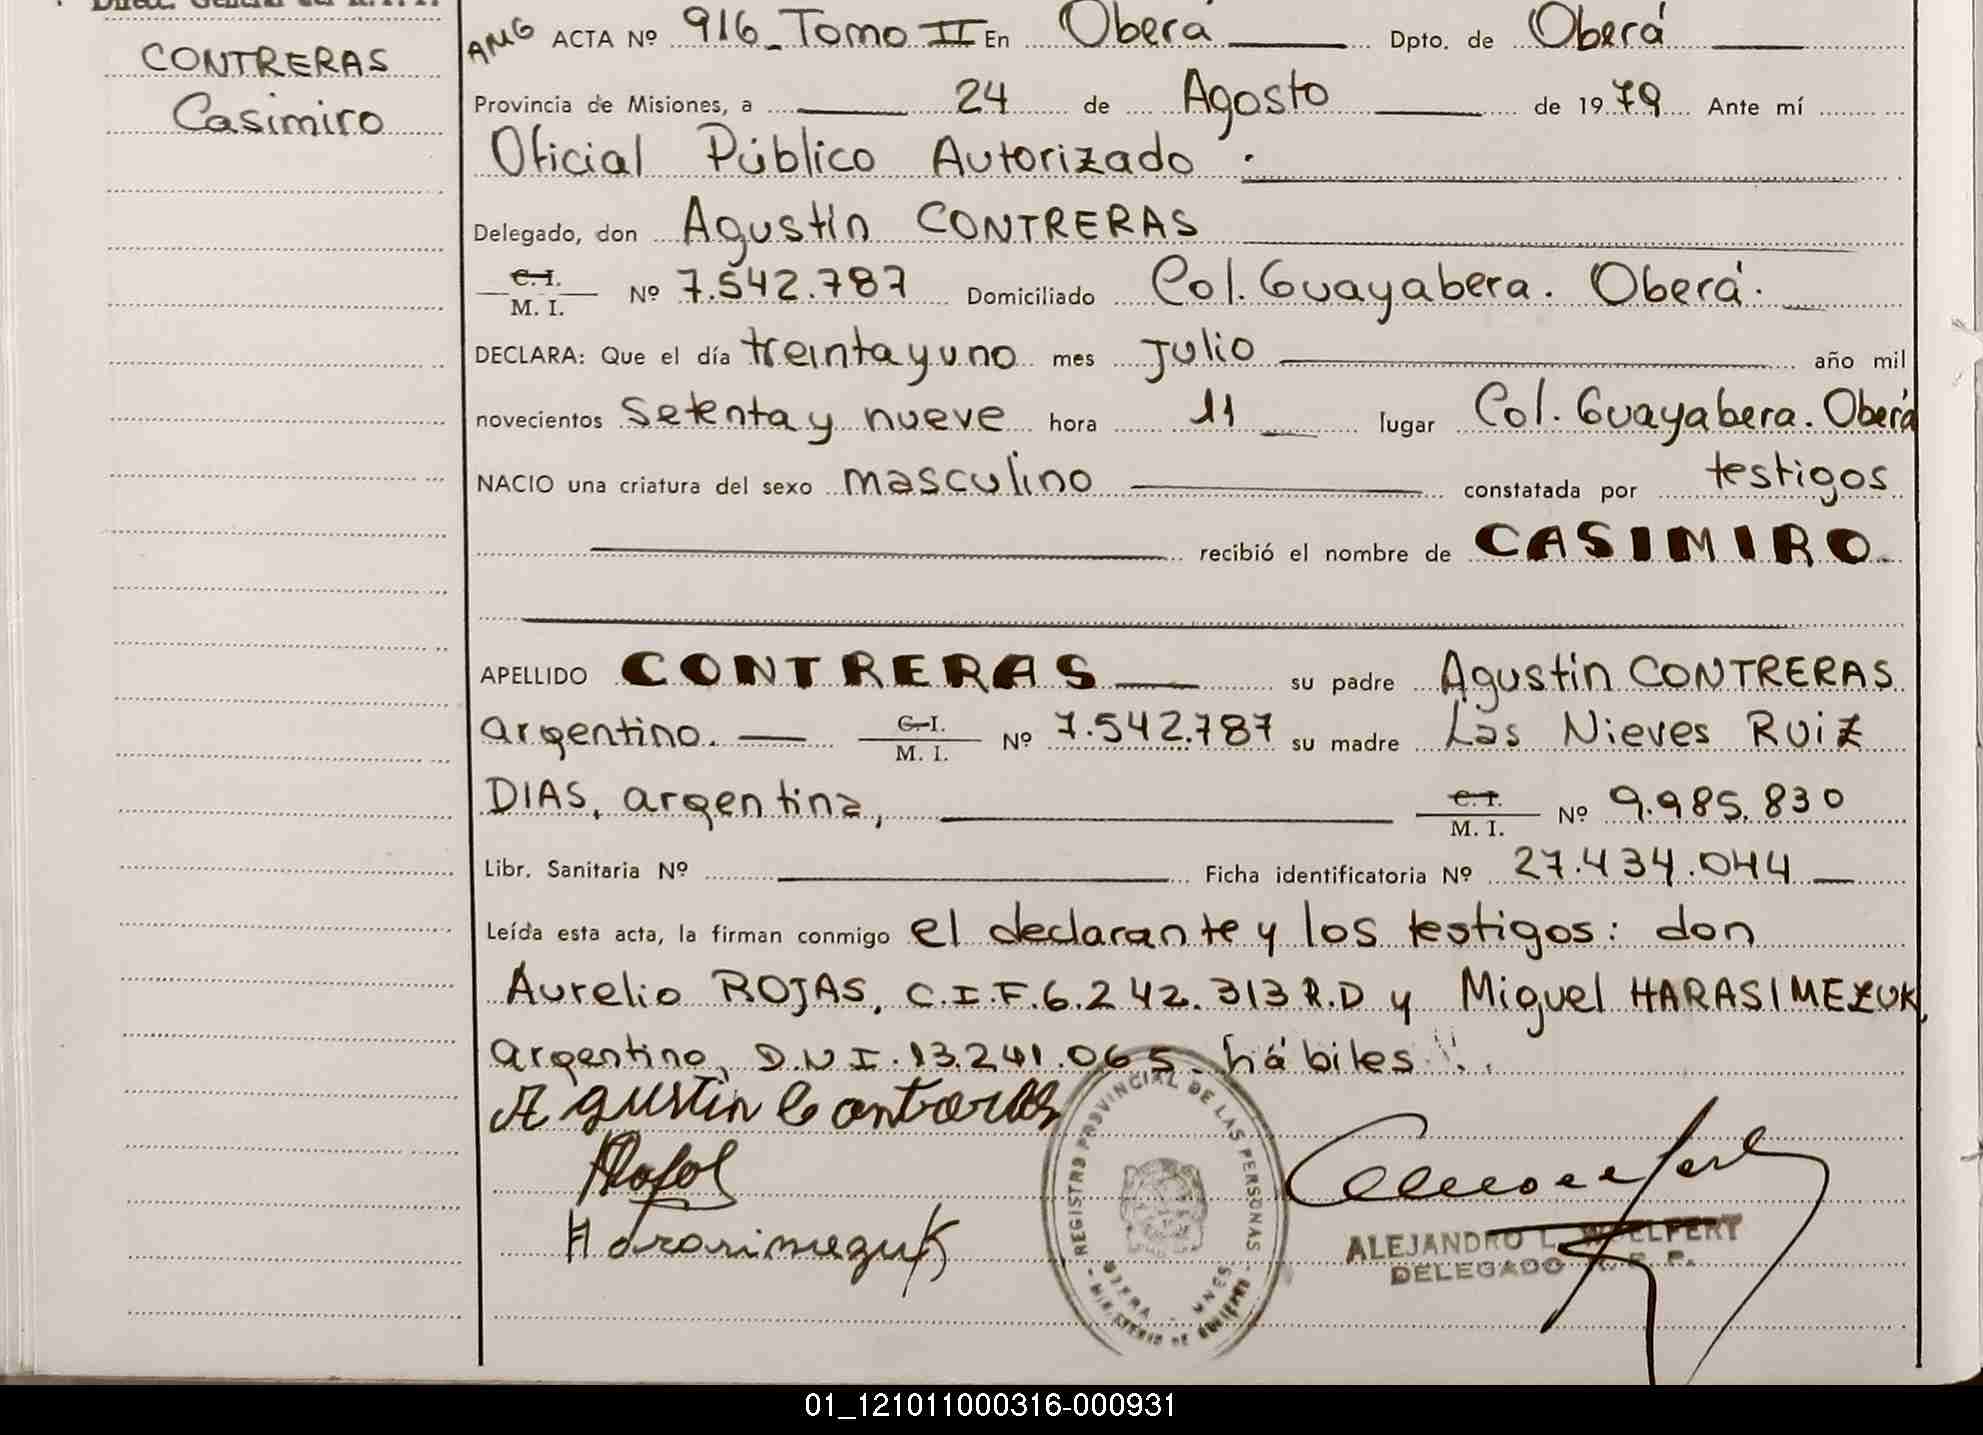 Direcc. General del R.P.P.
CONTRERAS
Casimiro
AMG ACTA Nº 916_Tomo II En Oberá Dpto. de Oberá
Provincia de Misiones, a 24 de Agosto de 1979 Ante mí
Oficial Público Autorizado
Delegado, don Agustín CONTRERAS
C. I.
M. I. Nº 7.542.787 Domiciliado Col. Guayabera. Oberá.
DECLARA: Que el día treinta y uno mes Julio año mil
novecientos setenta y nueve hora 11 lugar Col. Guayabera. Oberá
NACIO una criatura del sexo masculino constatada por testigos
recibió el nombre de CASIMIRO
APELLIDO CONTRERAS su padre Agustin CONTRERAS
argentino. C. I.
M. I. Nº 7.542.787 su madre Las Nieves RUIZ
DIAS, argentina, C. I.
M. I. Nº 9.985.830
Libr. Sanitaria Nº Ficha identificatoria Nº 27.434.044
Leída esta acta, la firman conmigo el declarante y los testigos: don
Aurelio ROJAS, C.I.F. 6.242.313 R.D y Miguel HARASIMEZUK,
argentino, D.N.I. 13.241.065. hábiles
Agustin Contreras
ARojas
Harasimezuk
REGISTRO PROVINCIAL DE LAS PERSONAS
OBERA MNES
MINISTERIO DE GOBIERNO
ALEJANDRO L. WELFERT
DELEGADO R. P. P.
01_121011000316-000931